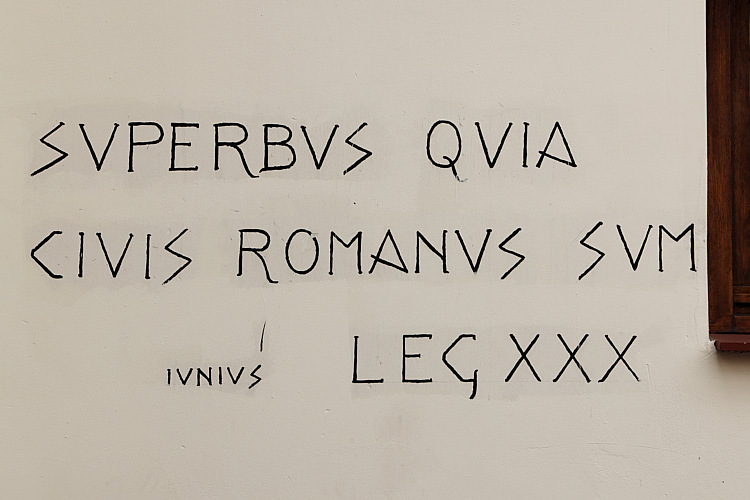 SVPERBVS QVIA
CIVIS ROMANVS SVM
IVNIVS LEG XXX